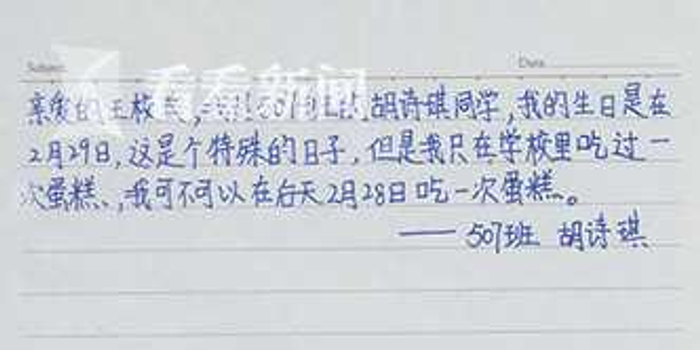 看看新闻
Subject Date
亲爱的王校长,我是507班的胡诗琪同学,我的生日是在
2月29日,这是个特殊的日子,但是我只在学校里吃过一
次蛋糕、,我可不可以在后天2月28日吃一次蛋糕、。
——507班 胡诗琪